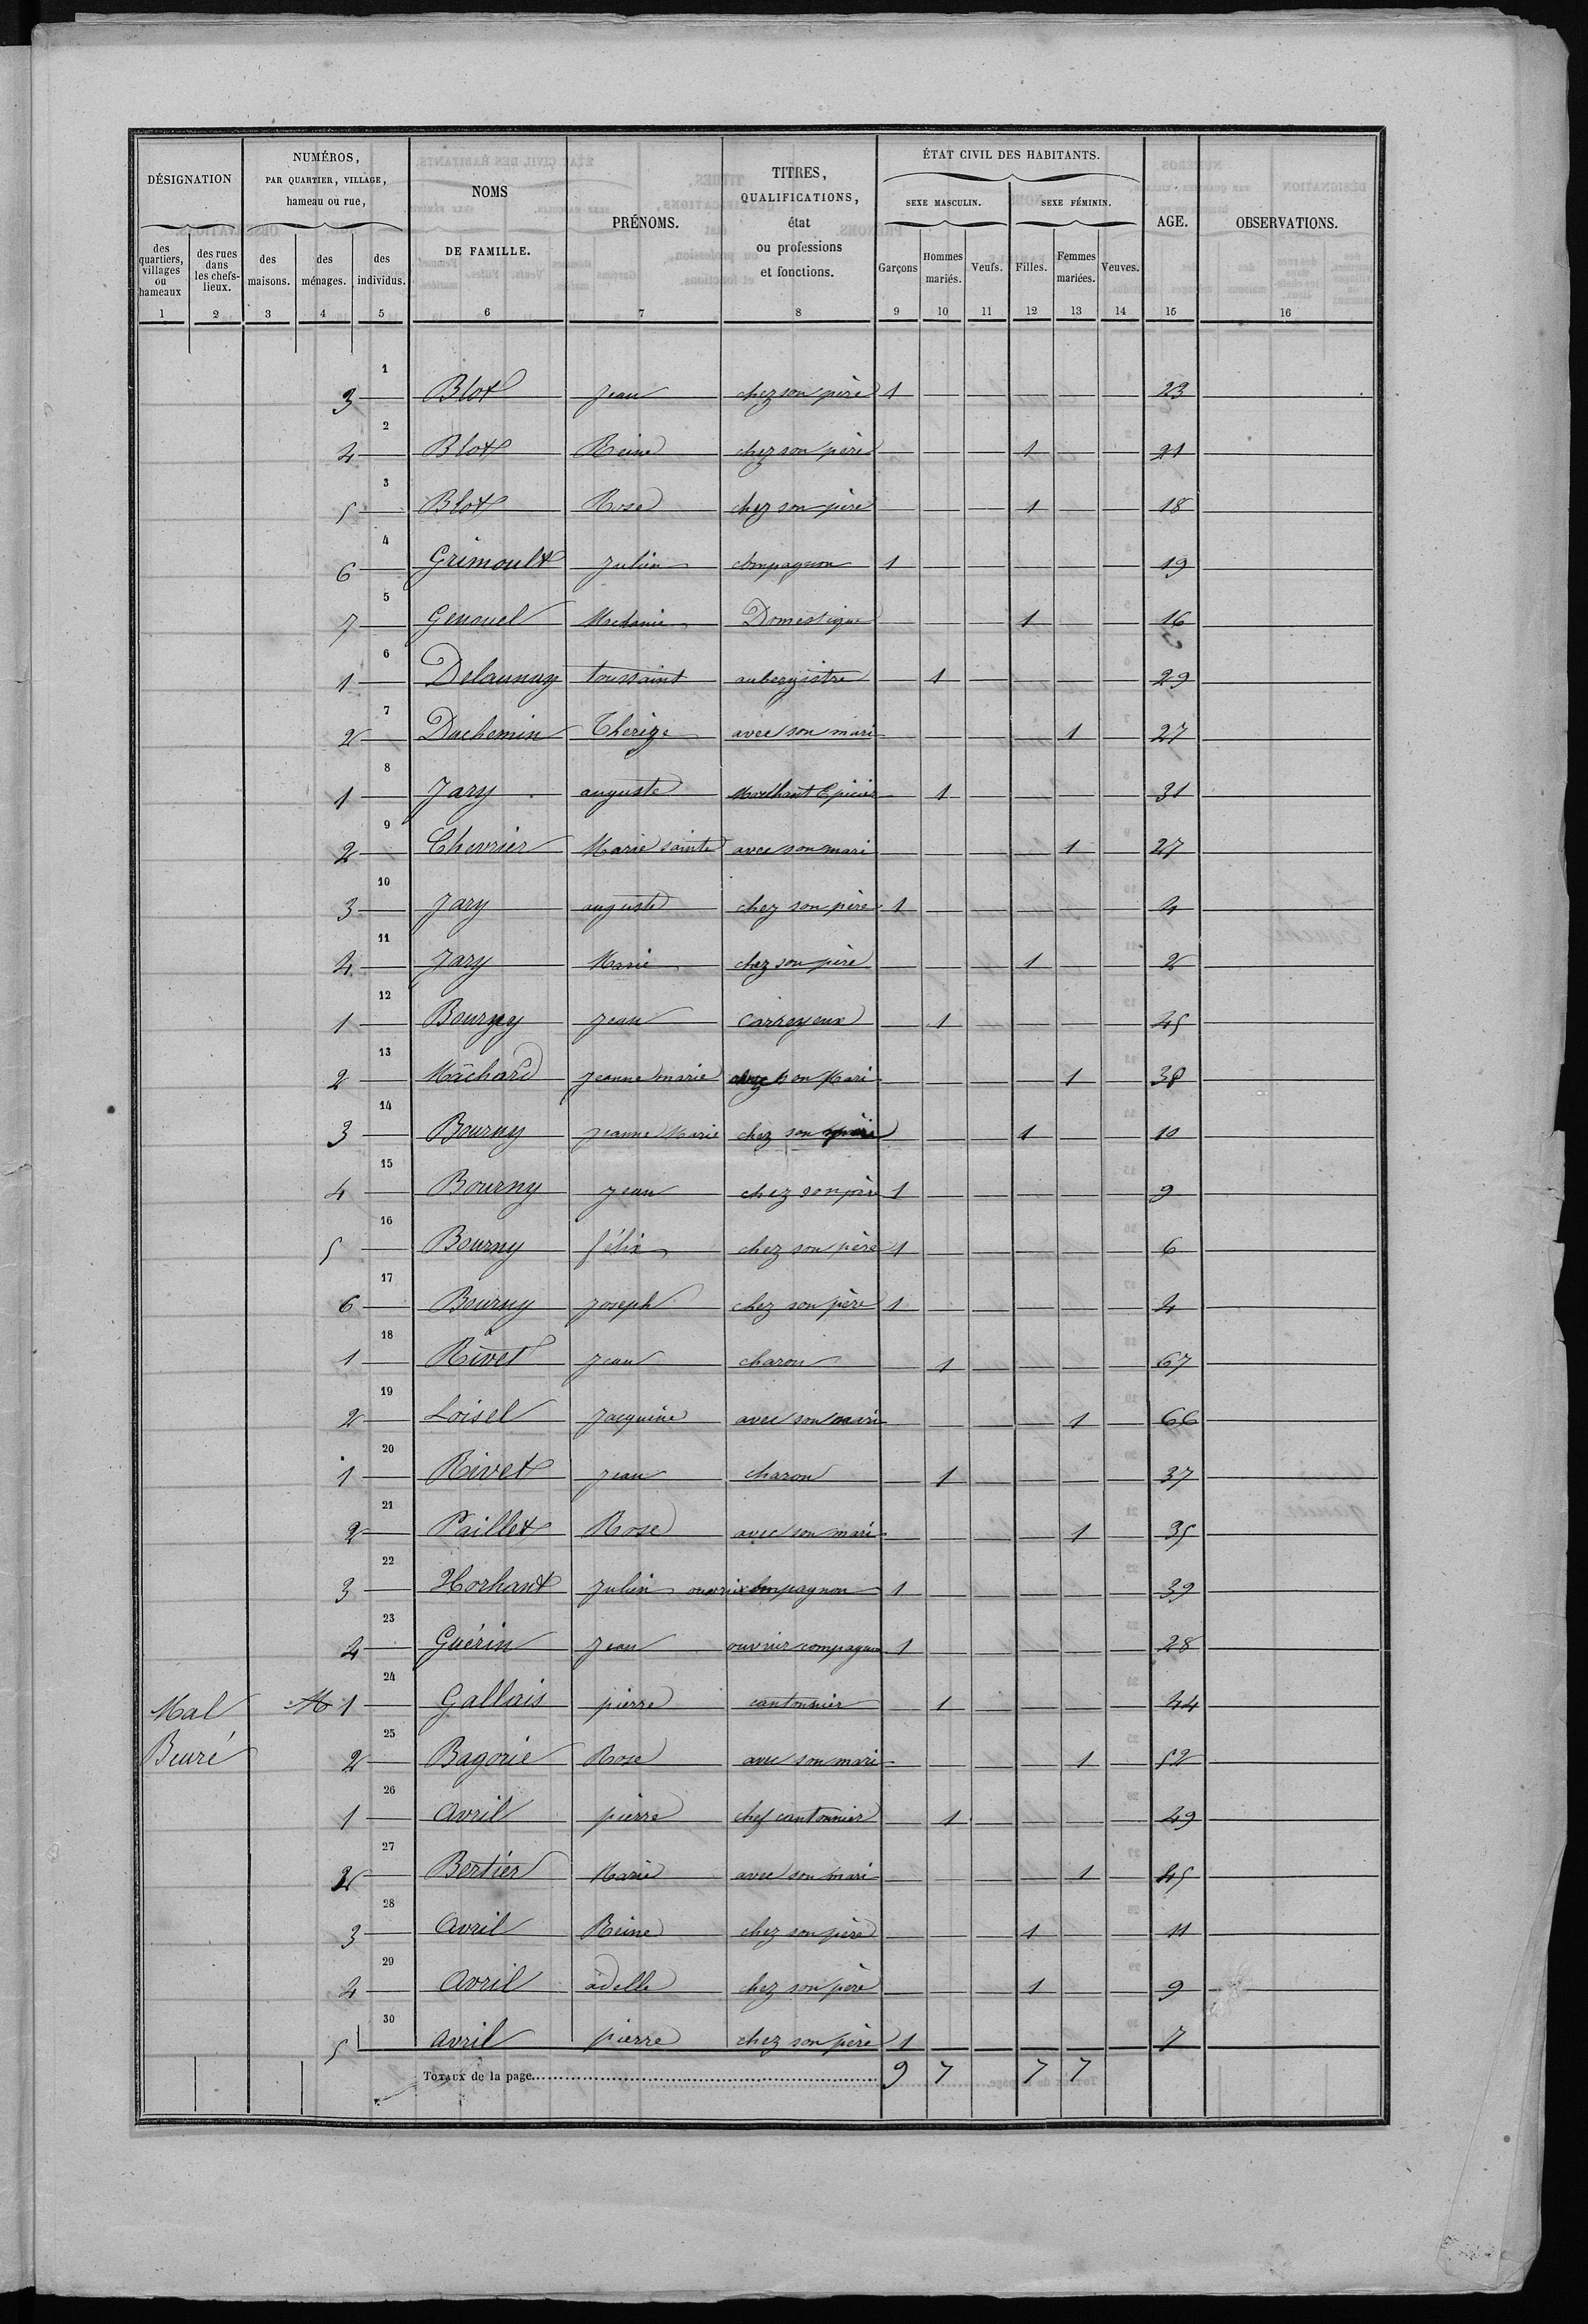 DÉSIGNATION
NUMÉROS,
PAR QUARTIER, VILLAGE,
hameau ou rue,
NOMS
DE FAMILLE.
PRÉNOMS.
TITRES,
QUALIFICATIONS,
état
ou professions
et fonctions.
ÉTAT CIVIL DES HABITANTS.
SEXE MASCULIN. SEXE FÉMININ.
AGE.
OBSERVATIONS.
des quartiers, villages ou hameaux
des rues dans les chefs-lieux.
des maisons.
des ménages.
des individus.
Garçons
Hommes mariés.
Veufs.
Filles.
Femmes mariées.
Veuves.
1 2 3 4 5 6 7 8 9 10 11 12 13 14 15 16
3 1 Blot Jean chez son père 1 23
4 2 Blot Reine chez son père 1 21
5 3 Blot Rose chez son père 1 18
6 4 Grimoult Julien compagnon 1 19
7 5 Genouel Domestique 1 16
1 6 Delaunay toussaint aubergistre 1 29
2 7 Duchemin Thérèze avec son mari 1 27
1 8 Jary auguste Marchant Epicier 1 31
2 9 Chevrier Marie sainte avec son mari 1 27
3 10 Jary auguste chez son père 1 4
4 11 Jary Marie chez son père 1 2
1 12 Bourny Jean Carreyeux 1 45
2 13 Mâchard Jeanne marie son Mari 1 38
3 14 Bourny Jeanne Marie chez son père 1 10
4 15 Bourny Jean chez son père 1 9
5 16 Bourny félix chez son père 1 6
6 17 Bourny Joseph chez son père 1 4
1 18 Rivet Jean charon 1 67
2 19 Loisel Jacquine avec son mari 1 66
1 20 Rivet Jean charon 1 37
2 21 Paillet Rose avec son mari 1 35
3 22 Horhant Julien ouvrier compagnon 1 39
4 23 Guérin Jean ouvrier compagnon 1 28
Mal 1 24 Gallais pierre cantonnier 1 44
Beuré 2 25 Bagorie Rose avec son mari 1 52
1 26 Avril pierre chef cantonnier 1 49
2 27 Bertier Marie avec son mari 1 45
3 28 Avril Reine chez son père 1 11
4 29 Avril adelle chez son père 1 9
5 30 avril pierre chez son père 1 7
TOTAUX de la page 9 7 7 7